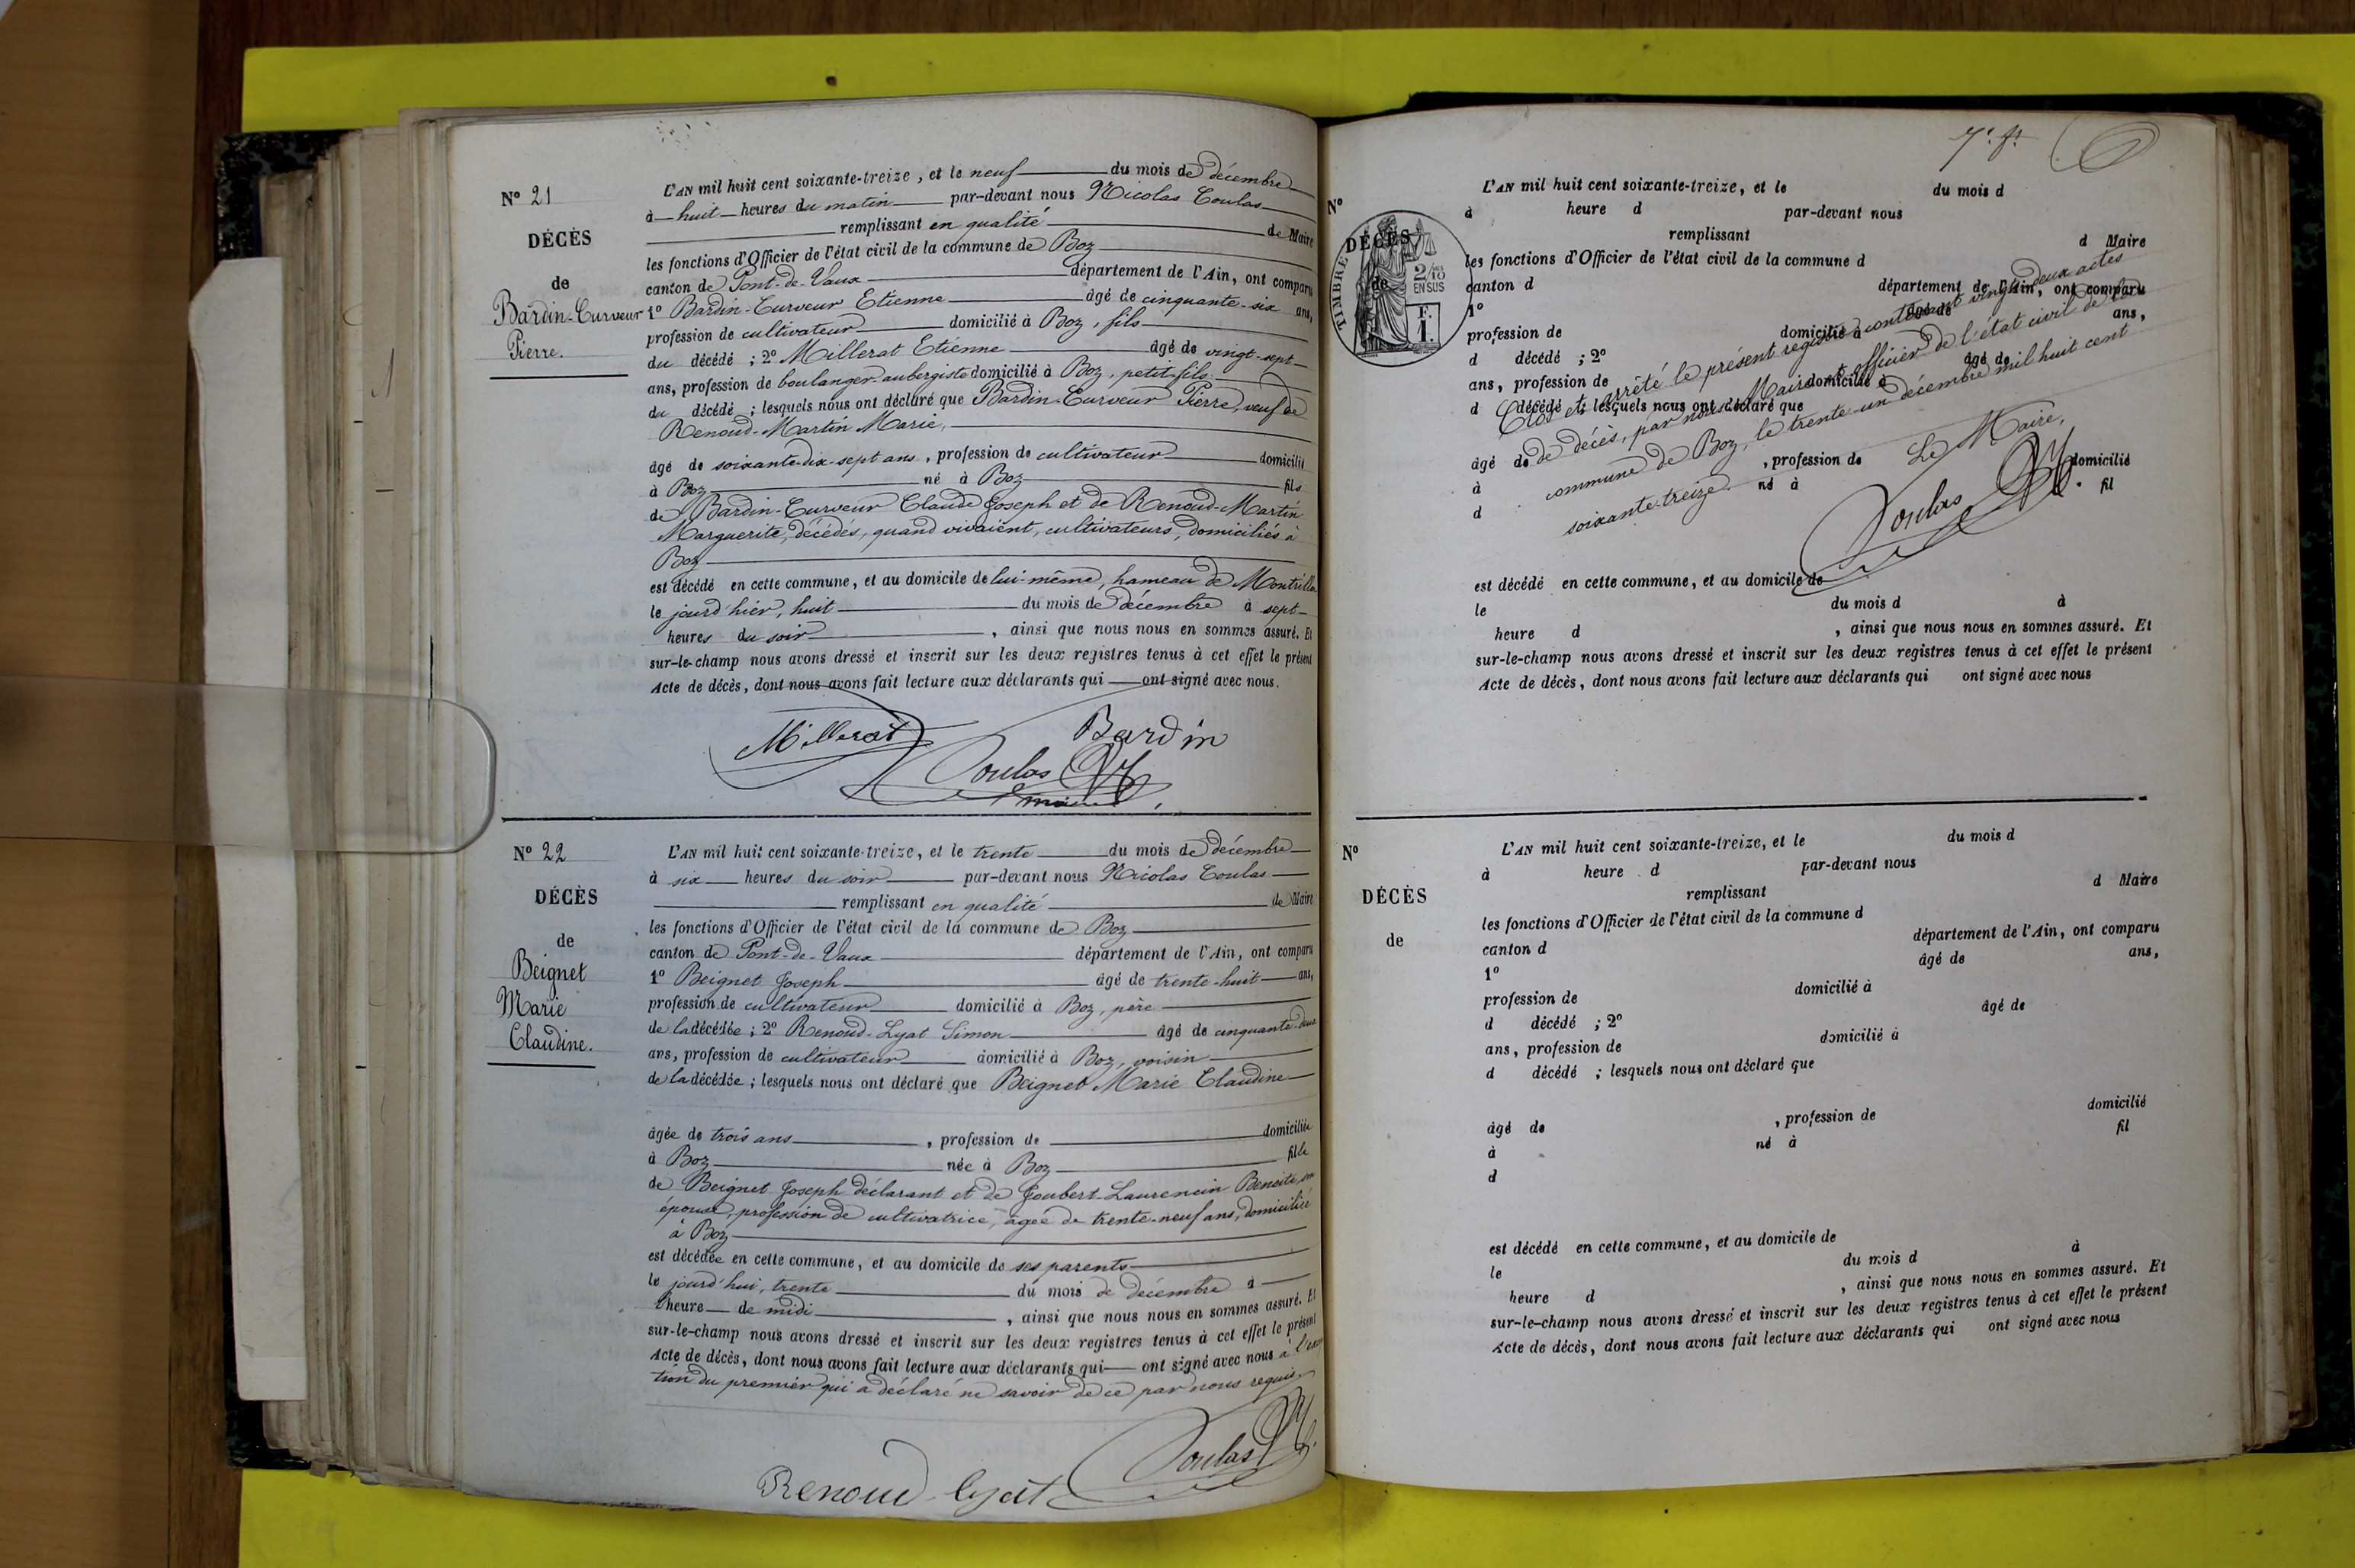 N° 21
DÉCÈS
de
Bardin-Curveur
Pierre.
L'AN mil huit cent soixante-treize, et le neuf du mois de décembre
à huit heures du matin par-devant nous Nicolas Coulas
remplissant en qualité de Maire
les fonctions d'Officier de l'état civil de la commune de Boz
canton de Pont-de-Vaux département de l'Ain, ont comparu
1° Bardin-Curveur Etienne âgé de cinquante-six ans,
profession de cultivateur domicilié à Boz, fils
du décédé ; 2° Millerat Etienne âgé de vingt-sept
ans, profession de boulanger-aubergiste domicilié à Boz, petit-fils
du décédé ; lesquels nous ont déclaré que Bardin-Curveur Pierre, veuf de
Renoud-Martin Marie,
âgé de soixante-dix-sept ans, profession de cultivateur domicilié
à Boz né à Boz fils
de Bardin-Curveur Claude Joseph et de Renoud-Martin
Marguerite, décédés, quand vivaient, cultivateurs, domiciliés à
Boz
est décédé en cette commune, et au domicile de lui-même, hameau de
le jourd'hier, huit du mois de décembre à sept
heures du soir, ainsi que nous nous en sommes assuré. Et
sur-le-champ nous avons dressé et inscrit sur les deux registres tenus à cet effet le présent
Acte de décès, dont nous avons fait lecture aux déclarants qui ont signé avec nous.
Millerat Bardin
Coulas
maire
N° 22
DÉCÈS
de
Beignet
Marie
Claudine.
L'AN mil huit cent soixante-treize, et le trente du mois de décembre
à six heures du soir par-devant nous Nicolas Coulas
remplissant en qualité de Maire
les fonctions d'Officier de l'état civil de la commune de Boz
canton de Pont-de-Vaux département de l'Ain, ont comparu
1° Beignet Joseph âgé de trente-huit ans,
profession de cultivateur domicilié à Boz, père
de la décédée ; 2° Renoud-Lyat Simon âgé de cinquante-deux
ans, profession de cultivateur domicilié à Boz, voisin
de la décédée ; lesquels nous ont déclaré que Beignet Marie Claudine
âgée de trois ans, profession de domiciliée
à Boz née à Boz fille
de Beignet Joseph déclarant et de Joubert-Laurencin Benoite, son
épouse, profession de cultivatrice, âgée de trente-neuf ans, domiciliée
à Boz
est décédée en cette commune, et au domicile de ses parents
le jourd'hui, trente du mois de décembre à
l'heure de midi, ainsi que nous nous en sommes assuré. Et
sur-le-champ nous avons dressé et inscrit sur les deux registres tenus à cet effet le présent
Acte de décès, dont nous avons fait lecture aux déclarants qui ont signé avec nous à
tion du premier qui a déclaré ne savoir de ce par nous requis.
Coulas
Renoud lyat
N°
DÉCÈS
de
TIMBRE
2/10
EN SUS
F.
1.
L'AN mil huit cent soixante-treize, et le du mois d
à heure d par-devant nous
remplissant d Maire
les fonctions d'Officier de l'état civil de la commune d
canton d département de l'Ain, ont comparu
1° âgé de ans,
profession de domicilié à
d décédé ; 2° âgé de
ans, profession de domicilié à
d décédé ; lesquels nous ont déclaré que
âgé de , profession de domicilié
à né à fil
d
Clos et arrêté le présent registre contenant vingt-deux actes
de décès, par nous Maire et officier de l'état civil de la
commune de Boz, le trente-un décembre mil huit cent
soixante-treize.
Le Maire,
Coulas
est décédé en cette commune, et au domicile de
le du mois d à
heure d , ainsi que nous nous en sommes assuré. Et
sur-le-champ nous avons dressé et inscrit sur les deux registres tenus à cet effet le présent
Acte de décès, dont nous avons fait lecture aux déclarants qui ont signé avec nous
N°
DÉCÈS
de
L'AN mil huit cent soixante-treize, et le du mois d
à heure d par-devant nous
remplissant d Maire
les fonctions d'Officier de l'état civil de la commune d
canton d département de l'Ain, ont comparu
1° âgé de ans,
profession de domicilié à
d décédé ; 2° âgé de
ans, profession de domicilié à
d décédé ; lesquels nous ont déclaré que
âgé de , profession de domicilié
à né à fil
d
est décédé en cette commune, et au domicile de
le du mois d à
heure d , ainsi que nous nous en sommes assuré. Et
sur-le-champ nous avons dressé et inscrit sur les deux registres tenus à cet effet le présent
Acte de décès, dont nous avons fait lecture aux déclarants qui ont signé avec nous